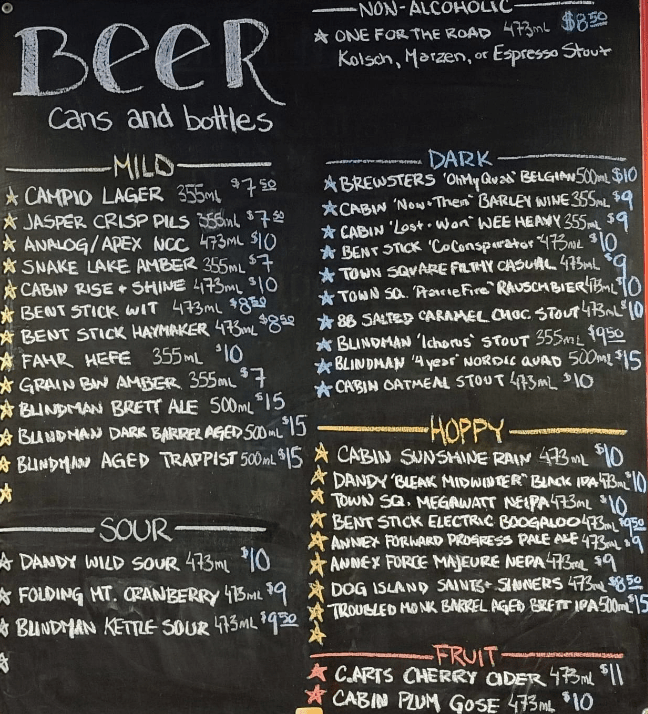 BEER
cans and bottles
MILD
CAMPIO LAGER 355mL $7.50
JASPER CRISP PILS 355mL $7.50
ANALOG/APEX NCC 473mL $10
SNAKE LAKE AMBER 355mL $7
CABIN RISE + SHINE 473mL $10
BENT STICK WIT 473mL $8.50
BENT STICK HAYMAKER 473mL $8.50
FAHR HEFE 355mL $10
GRAIN BIN AMBER 355mL $7
BLINDMAN BRETT ALE 500mL $15
BLINDMAN DARK BARREL AGED 500mL $15
BLINDMAN AGED TRAPPIST 500mL $15
SOUR
DANDY WILD SOUR 473mL $10
FOLDING MT. CRANBERRY 473mL $9
BLINDMAN KETTLE SOUR 473mL $9.50
NON-ALCOHOLIC
ONE FOR THE ROAD 473mL $8.50
Kolsch, Marzen, or Espresso Stout
DARK
BREWSTERS 'Oh My Quad' BELGIAN 500mL $10
CABIN 'Now+Then' BARLEY WINE 355mL $9
CABIN 'Lost+Won' WEE HEAVY 355mL $9
BENT STICK 'CoConspirator' 473mL $10
TOWN SQUARE FILTHY CASUAL 473mL $9
TOWN SQ. 'Prairie Fire' RAUSCHBIER 473mL $10
88 SALTED CARAMEL CHOC STOUT 473mL $10
BLINDMAN 'Ichorus' STOUT 355mL $9.50
BLINDMAN '4 year' NORDIC QUAD 500mL $15
CABIN OATMEAL STOUT 473mL $10
HOPPY
CABIN SUNSHINE RAIN 473mL $10
DANDY 'BLEAK MIDWINTER' BLACK IPA 473mL $10
TOWN SQ. MEGAWATT NEIPA 473mL $10
BENT STICK ELECTRIC BOOGALOO 473mL $9.50
ANNEX FORWARD PROGRESS PALE ALE 473mL $9
ANNEX FORCE MAJEURE NEPA 473mL $9
DOG ISLAND SAINTS + SINNERS 473mL $8.50
TROUBLED MONK BARREL AGED BRETT IPA 500mL $15
FRUIT
C.ARTS CHERRY CIDER 473mL $11
CABIN PLUM GOSE 473mL $10